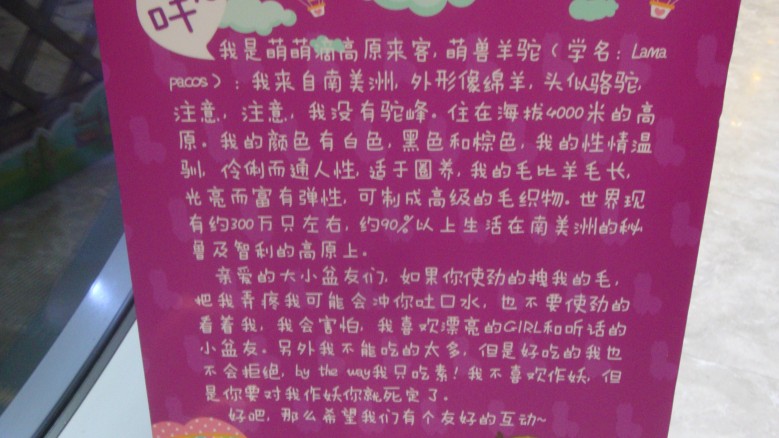 吁
我是萌萌滴高原来客，萌兽羊驼（学名：Lama
pacos）：我来自南美洲，外形像绵羊，头似骆驼，
注意，注意，我没有驼峰。住在海拔4000米的高
原。我的颜色有白色，黑色和棕色，我的性情温
驯，伶俐而通人性，适于圈养，我的毛比羊毛长，
光亮而富有弹性，可制成高级的毛织物。世界现
有约300万只左右，约90%以上生活在南美洲的秘
鲁及智利的高原上。
亲爱的大小盆友们，如果你使劲的拽我的毛，
吧我弄疼我可能会冲你吐口水，也不要使劲的
看着我，我会害怕，我喜欢漂亮的GIRL和听话的
小盆友。另外我不能吃的太多，但是好吃的我也
不会拒绝，by the way我只吃素！我不喜欢作妖，但
是你要对我作妖你就死定了。
好吧，那么希望我们有个友好的互动~